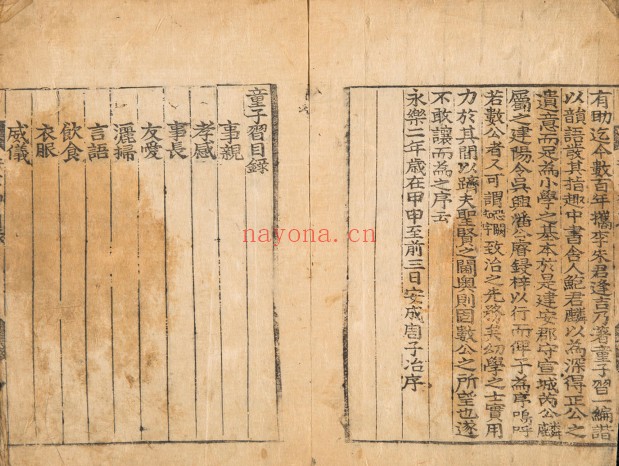 有助迄今數百年檇李朱君逢吉乃著童子習一編諧
以韻語敬其指趣中書舍人鮑君麟以為深得正公之
遺意而是為小學之基本於是建安郡守宣城芮公麟
屬之建陽令吳興潘公磨錢梓以行而俾予為序嗚呼
若數公者又可謂 致治之先務矣幼學之士實用
力於其間以躋夫聖賢之閫奧則固數公之所望也遂
不敢讓而為之序云
永樂二年歲在甲申至前三日安成周子冶序
童子習目錄
事親
孝感
事長
友愛
灑掃
言語
飲食
衣服
威儀
nayona.cn